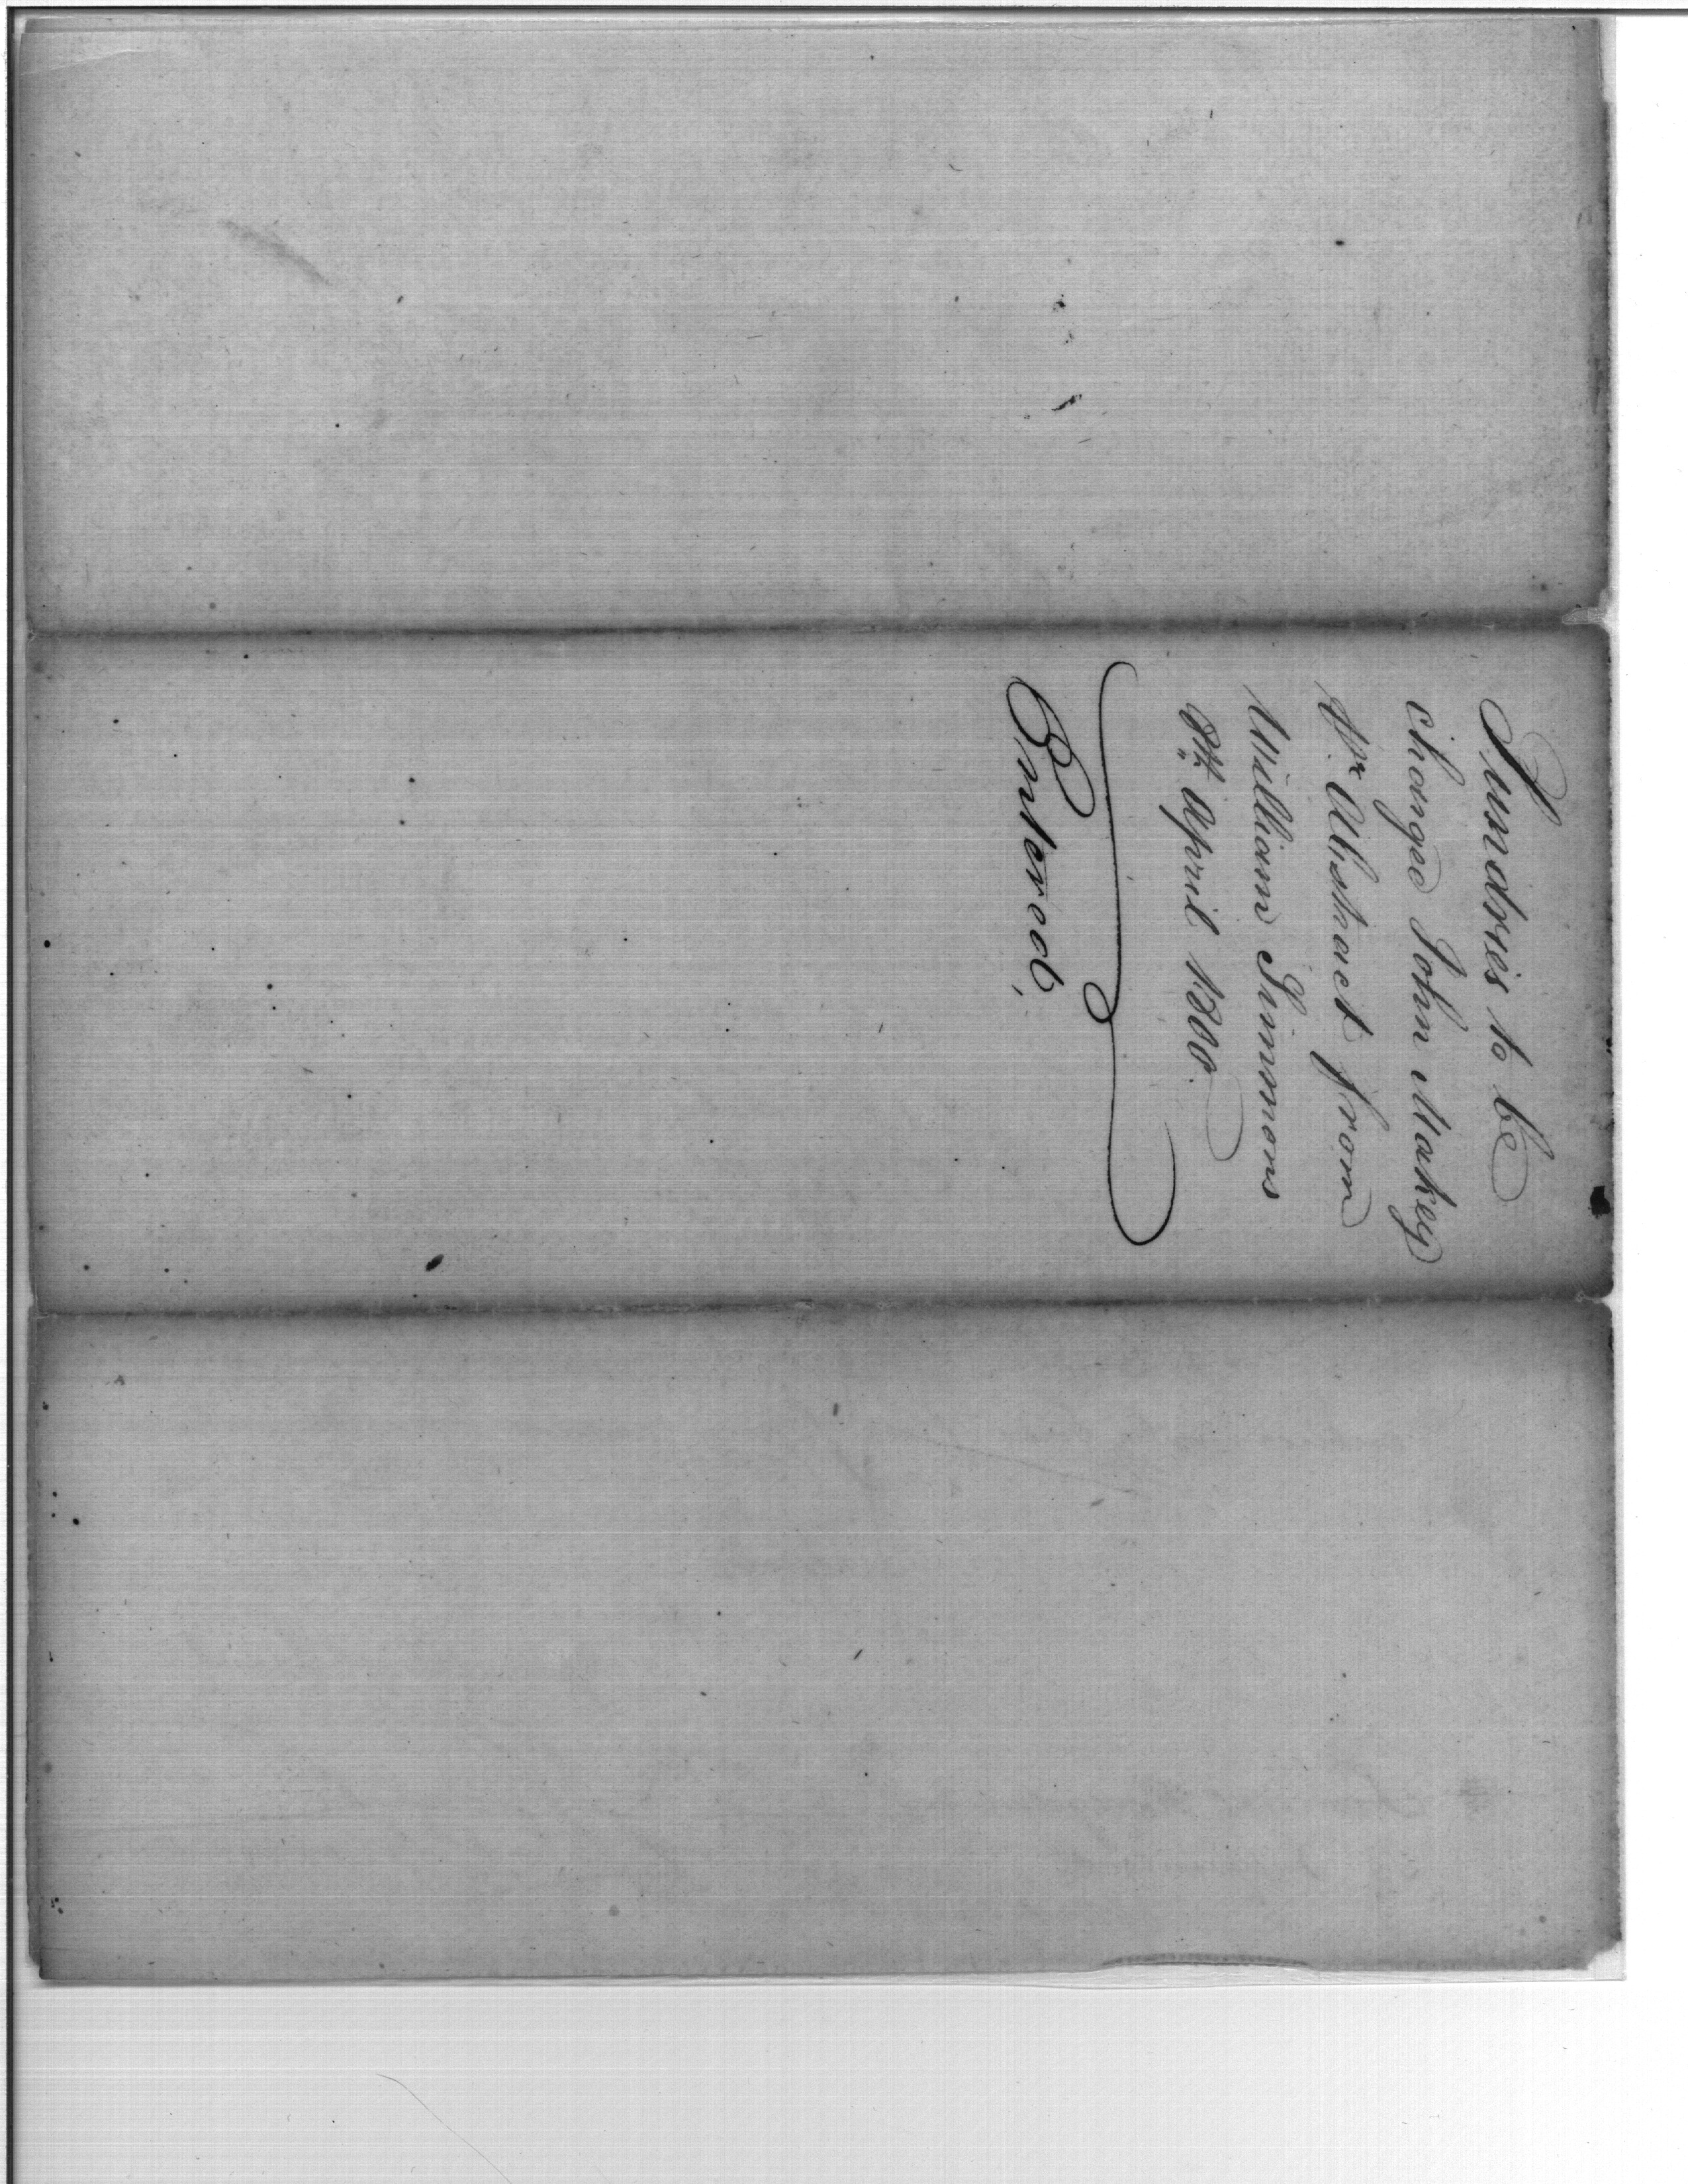 Sundries to be
charged John Markey
Pr. Abstract from
William Simmons
8th April 1800.
Entered,